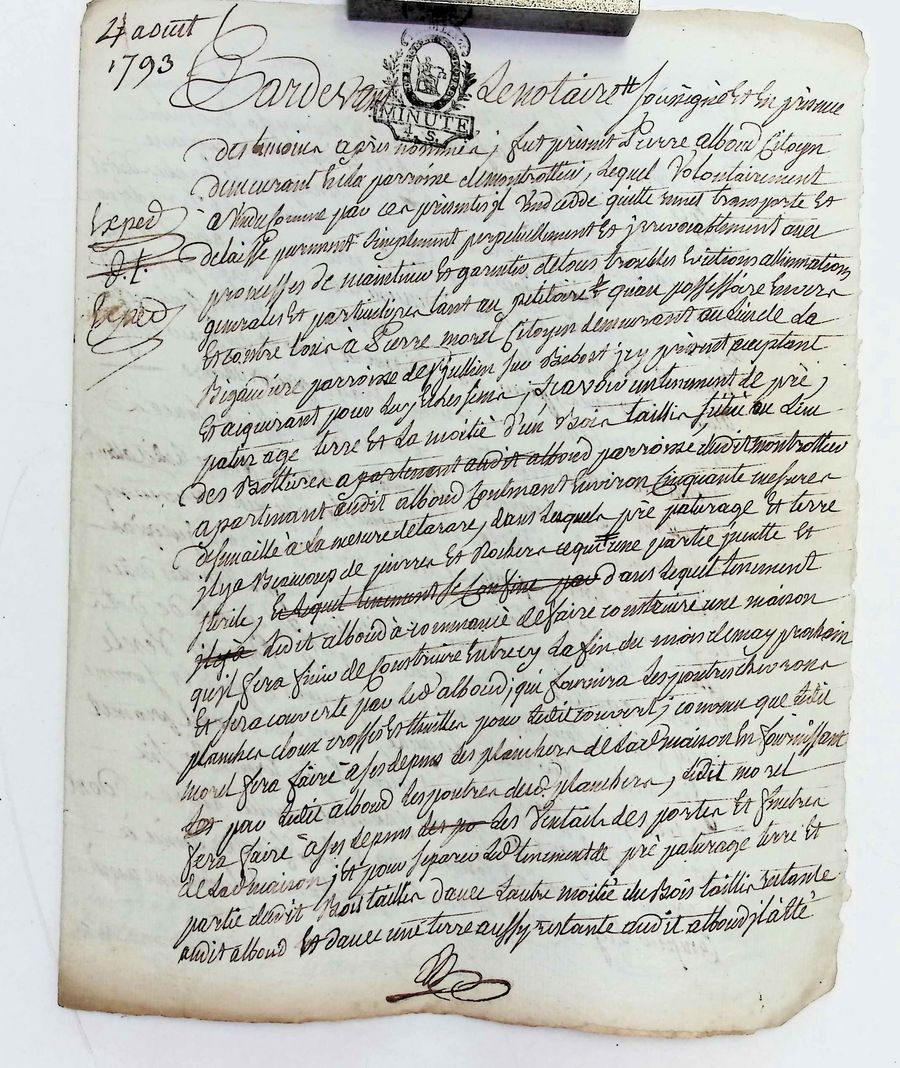 4 aout
1793
Pardevant Le notaire Soussigné Et En présence
MINUTE
4. S.
des temoins après nommés, fut présent Pierre alboud Citoyn
demeurant En la parroisse de montrottier, Lequel Volontairement
a Vendu comme par ces présentes il Vend cedde quitte remet transporte Et
Exped
delaisse purement Simplement perpetuellement Et irrevocablement avec
d. t.
promesses de maintenir Et garentir de tous troubles Evictions
Exped
generales Et particulieres tant au petitoire quau possessoire Envers
Et contre tous à Pierre morel Citoyen demeurant au Lieu de La
Bigaudiere parroisse de St jullien sur Bibost icy présent acceptant
Et acquerant pour Luy Et les siens, Scavoir un tenement de pré,
paturage terre Et La moitié d'un Bois taillis situé au Lieu
des Bottieres apartenant audit alboud parroisse dudit montrottier
apartenant audit alboud Contenant Environ Cinquante mesures
de semaille à La mesure de larare, dans Lesquels pré paturage Et terre
il y a Beaucoup de pierres Et Rochers ce qui une partie Et
sterile, Et Lequel tenement Se Confine par dans Lequel tenement
il y a Ledit alboud à commancé de faire construire une maison
qu'il sera finir de Construire Entrecy La fin du mois de may prochain
Et sera couverte par Led alboud, qui fournira Les poutres chevrons
planches cloux Et thuilles pour Ledit couvert, convenu que Ledit
morel fera faire à ses depens Les planchers de Lad maison En fournissant
par Ledit alboud Les poutres desd planchers, Ledit morel
fera faire à ses depens Les Ventails des portes Et fenetres
de Lad maison, Et pour separer Led tenement de pré paturage terre Et
partie dudit Bois taillis davec Lautre moitié du Bois taillis restante
audit alboud Et davec une terre aussy restante audit alboud il à Eté